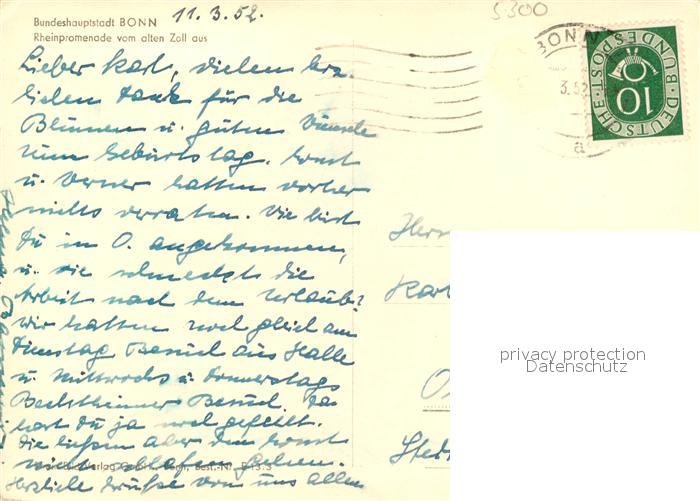 11.3.52.
5300
Bundeshauptstadt BONN
Rheinpromenade vom alten Zoll aus
BONN
3.52
a
DEUTSCHE BUNDESPOST
10
Lieber Karl, vielen herz
lichen Dank für die
Blumen u. guten Wünsche
zum Geburtstag. Horst
u. Werner hatten vorher
nichts verraten. Wie bist
Du in O. angekommen,
u. wie schmeckt die
Arbeit nach dem Urlaub?
Wir hatten noch gleich am
Dienstag Besuch aus Halle
u. Mittwochs u. Donnerstags
Bechtheimer Besuch. Da
hast Du ja noch gefehlt.
Die ließen aber den Horst
nicht schlafen gehen.
Herzliche Grüße von uns allen
Verlag Bonn, Best.-Nr. B 13.3
Herrn
Karl
privacy protection
Datenschutz